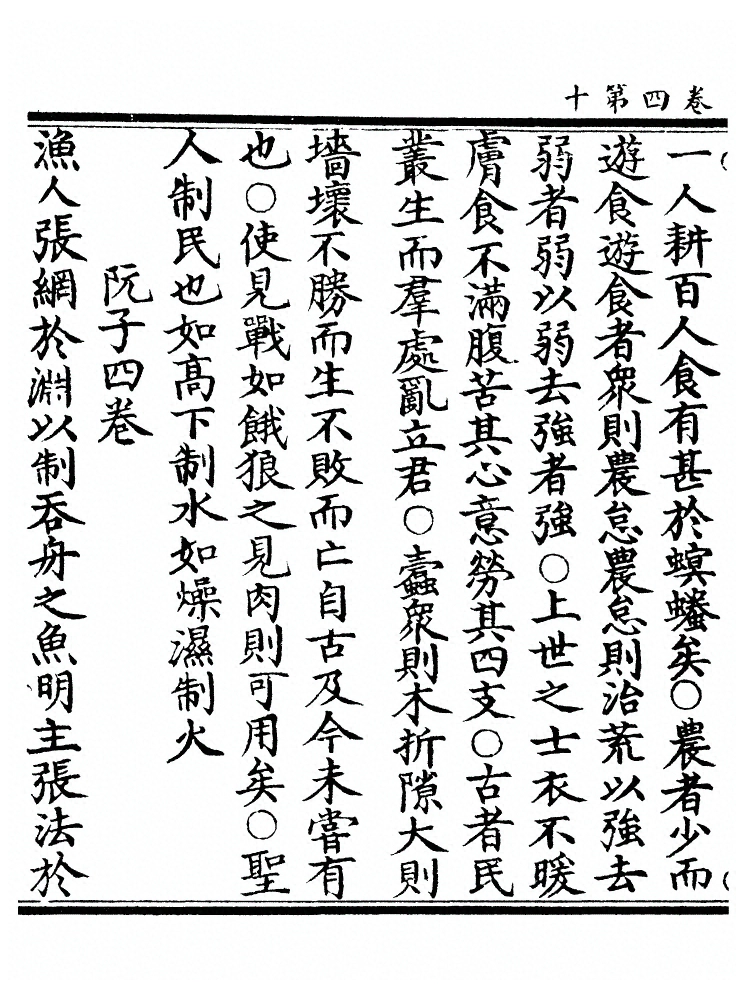 卷四第十
一人耕百人食有甚於螟蟠矣○農者少而
遊食遊食者衆則農怠農怠則治荒以強去
弱者弱以弱去強者強○上世之士衣不暖
膚食不滿腹苦其心意勞其四支○古者民
叢生而羣處亂立君○蠹衆則木折隙大則
墻壞不勝而生不敗而亡自古及今未嘗有
也○使見戰如餓狼之見肉則可用矣○聖
人制民也如高下制水如燥濕制火
阮子四卷
漁人張網於淵以制吞舟之魚明主張法於